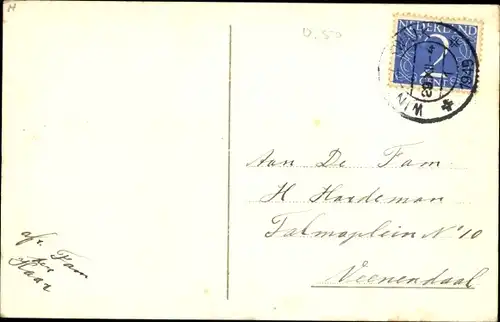 0.50
NEDERLAND
2
CENT
WIN
29 XII -4
1949
Aan De Fam.
H Hardeman
Talmaplein No 10
Veenendaal
afz. Fam
Haar